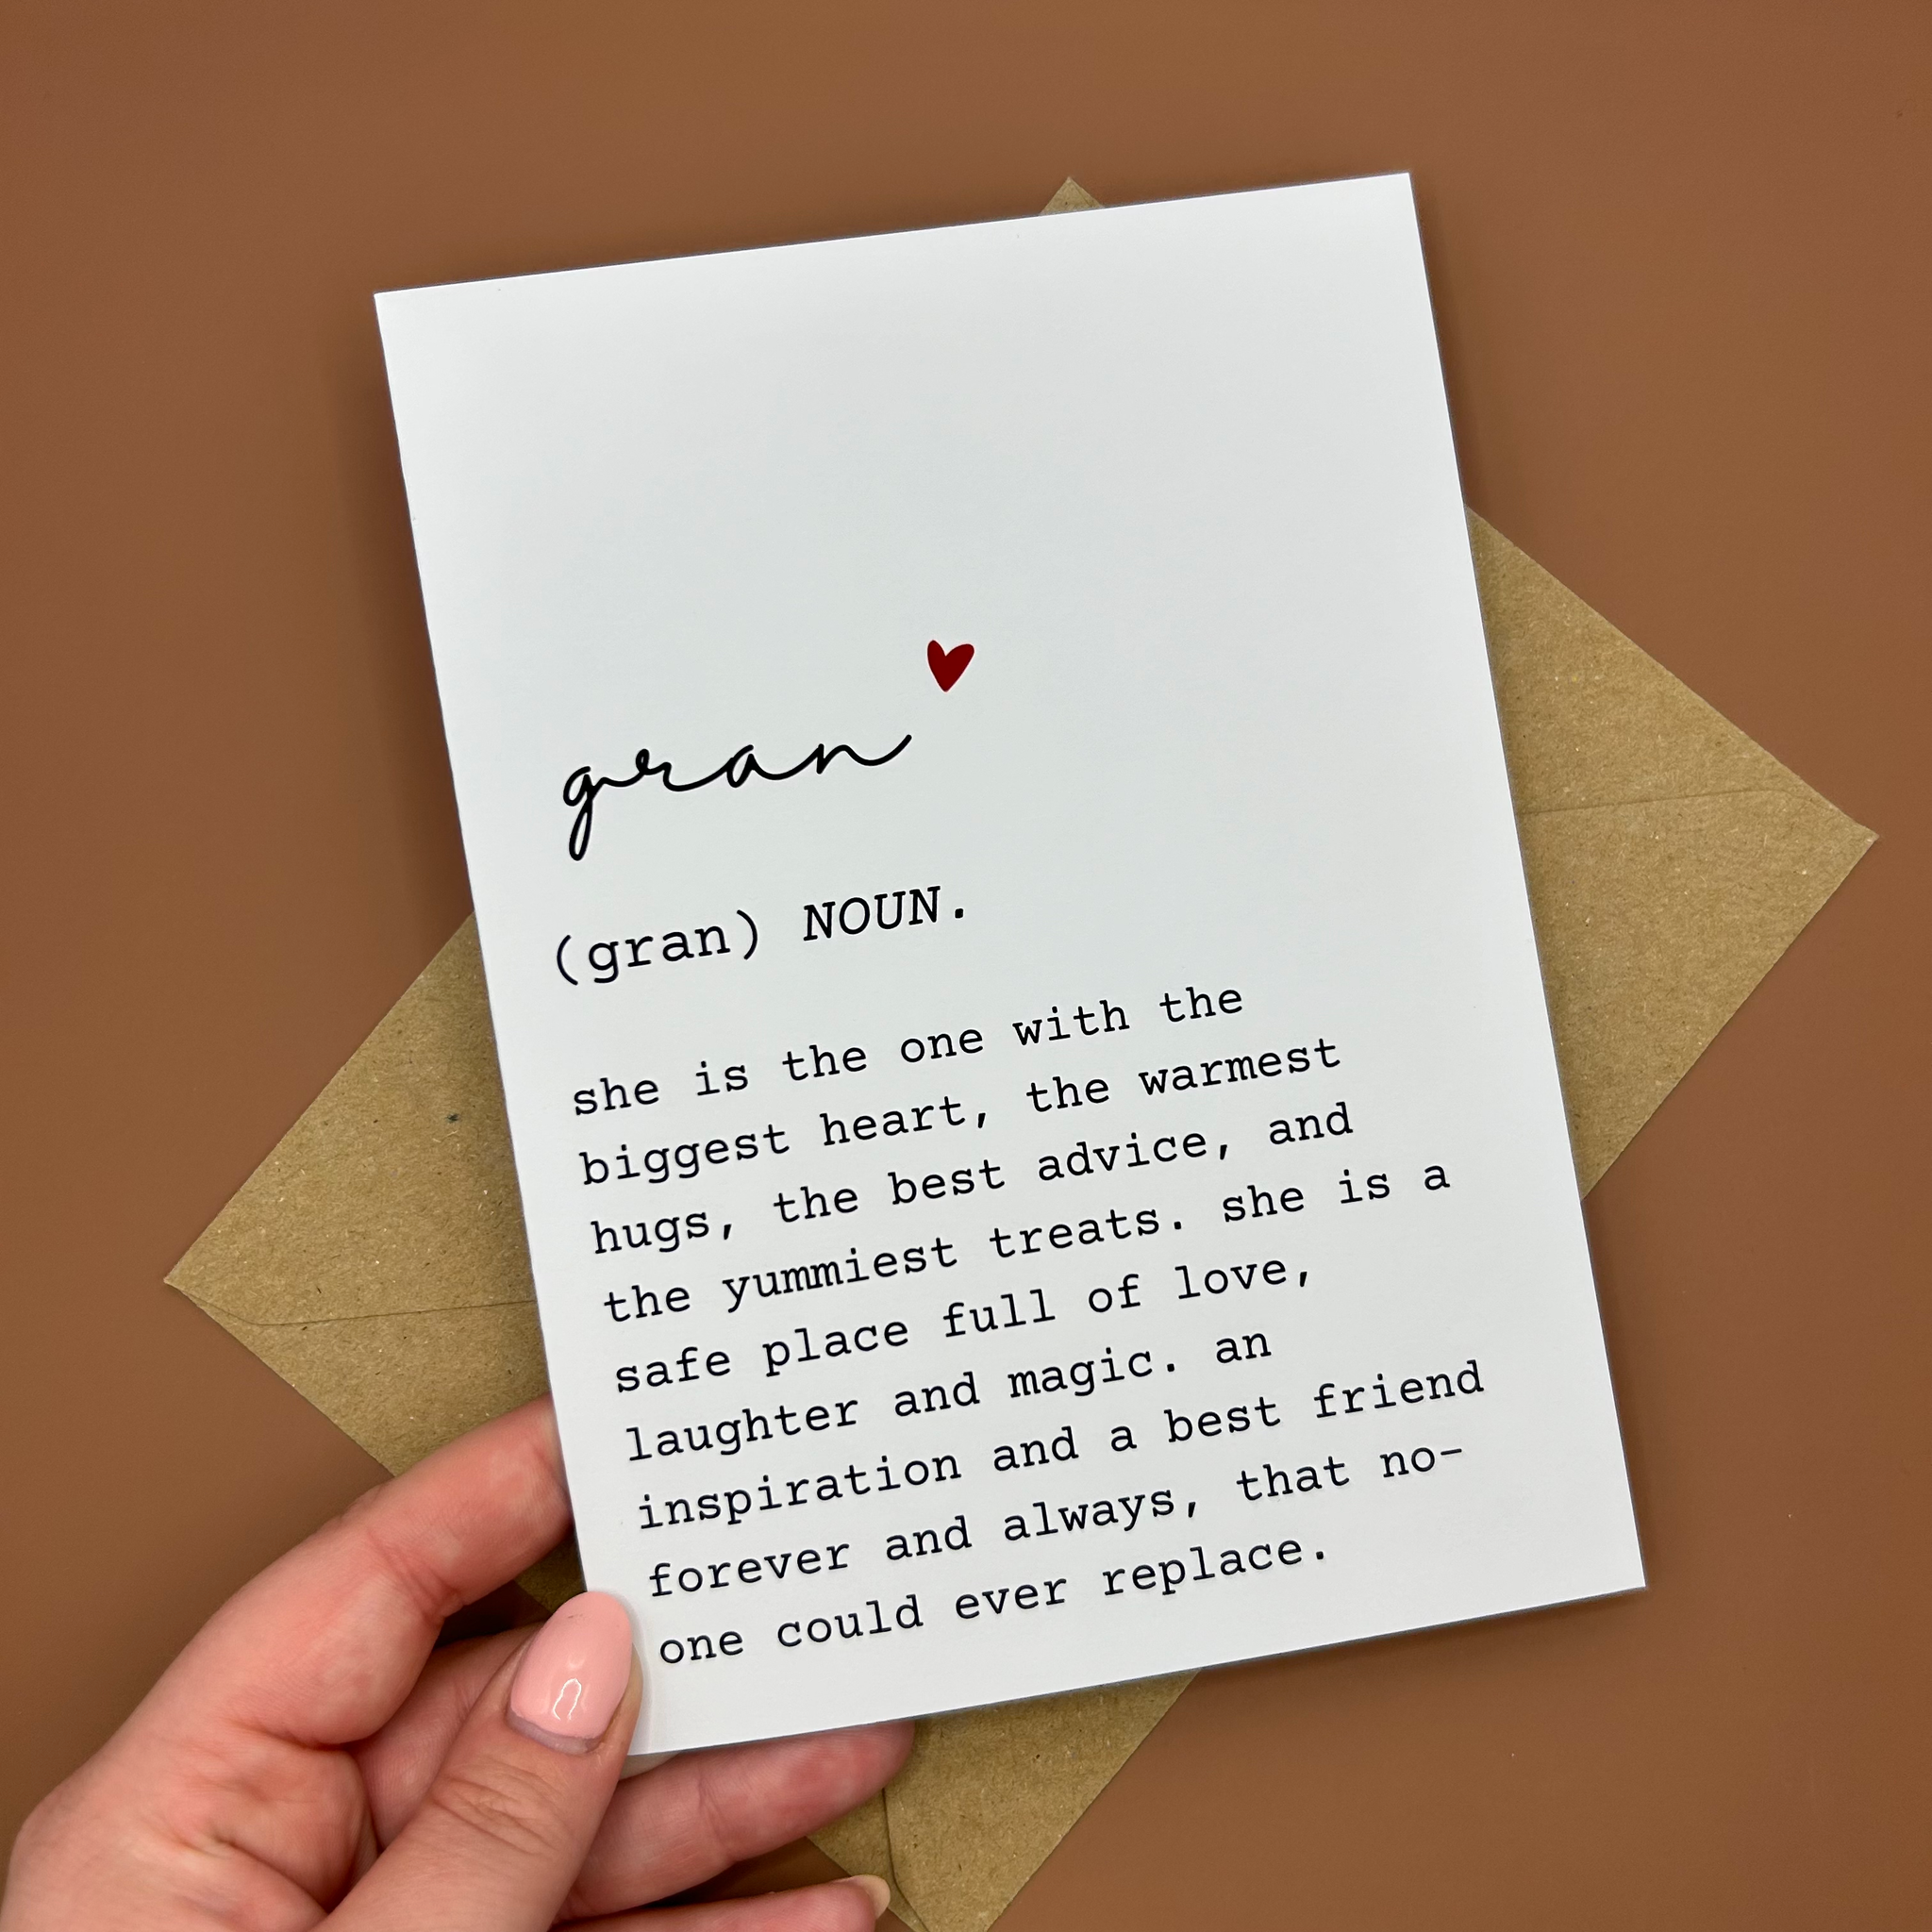 gran
(gran) NOUN.
she is the one with the
biggest heart, the warmest
hugs, the best advice, and
the yummiest treats. she is a
safe place full of love,
laughter and magic. an
inspiration and a best friend
forever and always, that no-
one could ever replace.